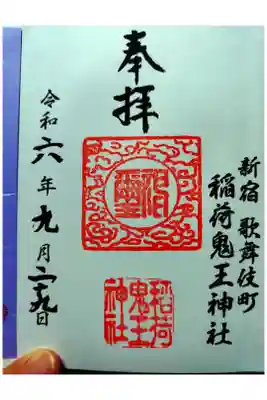 奉拝
新宿 歌舞伎町
稲荷鬼王神社
令和六年九月二九日
稲荷
鬼王
神社